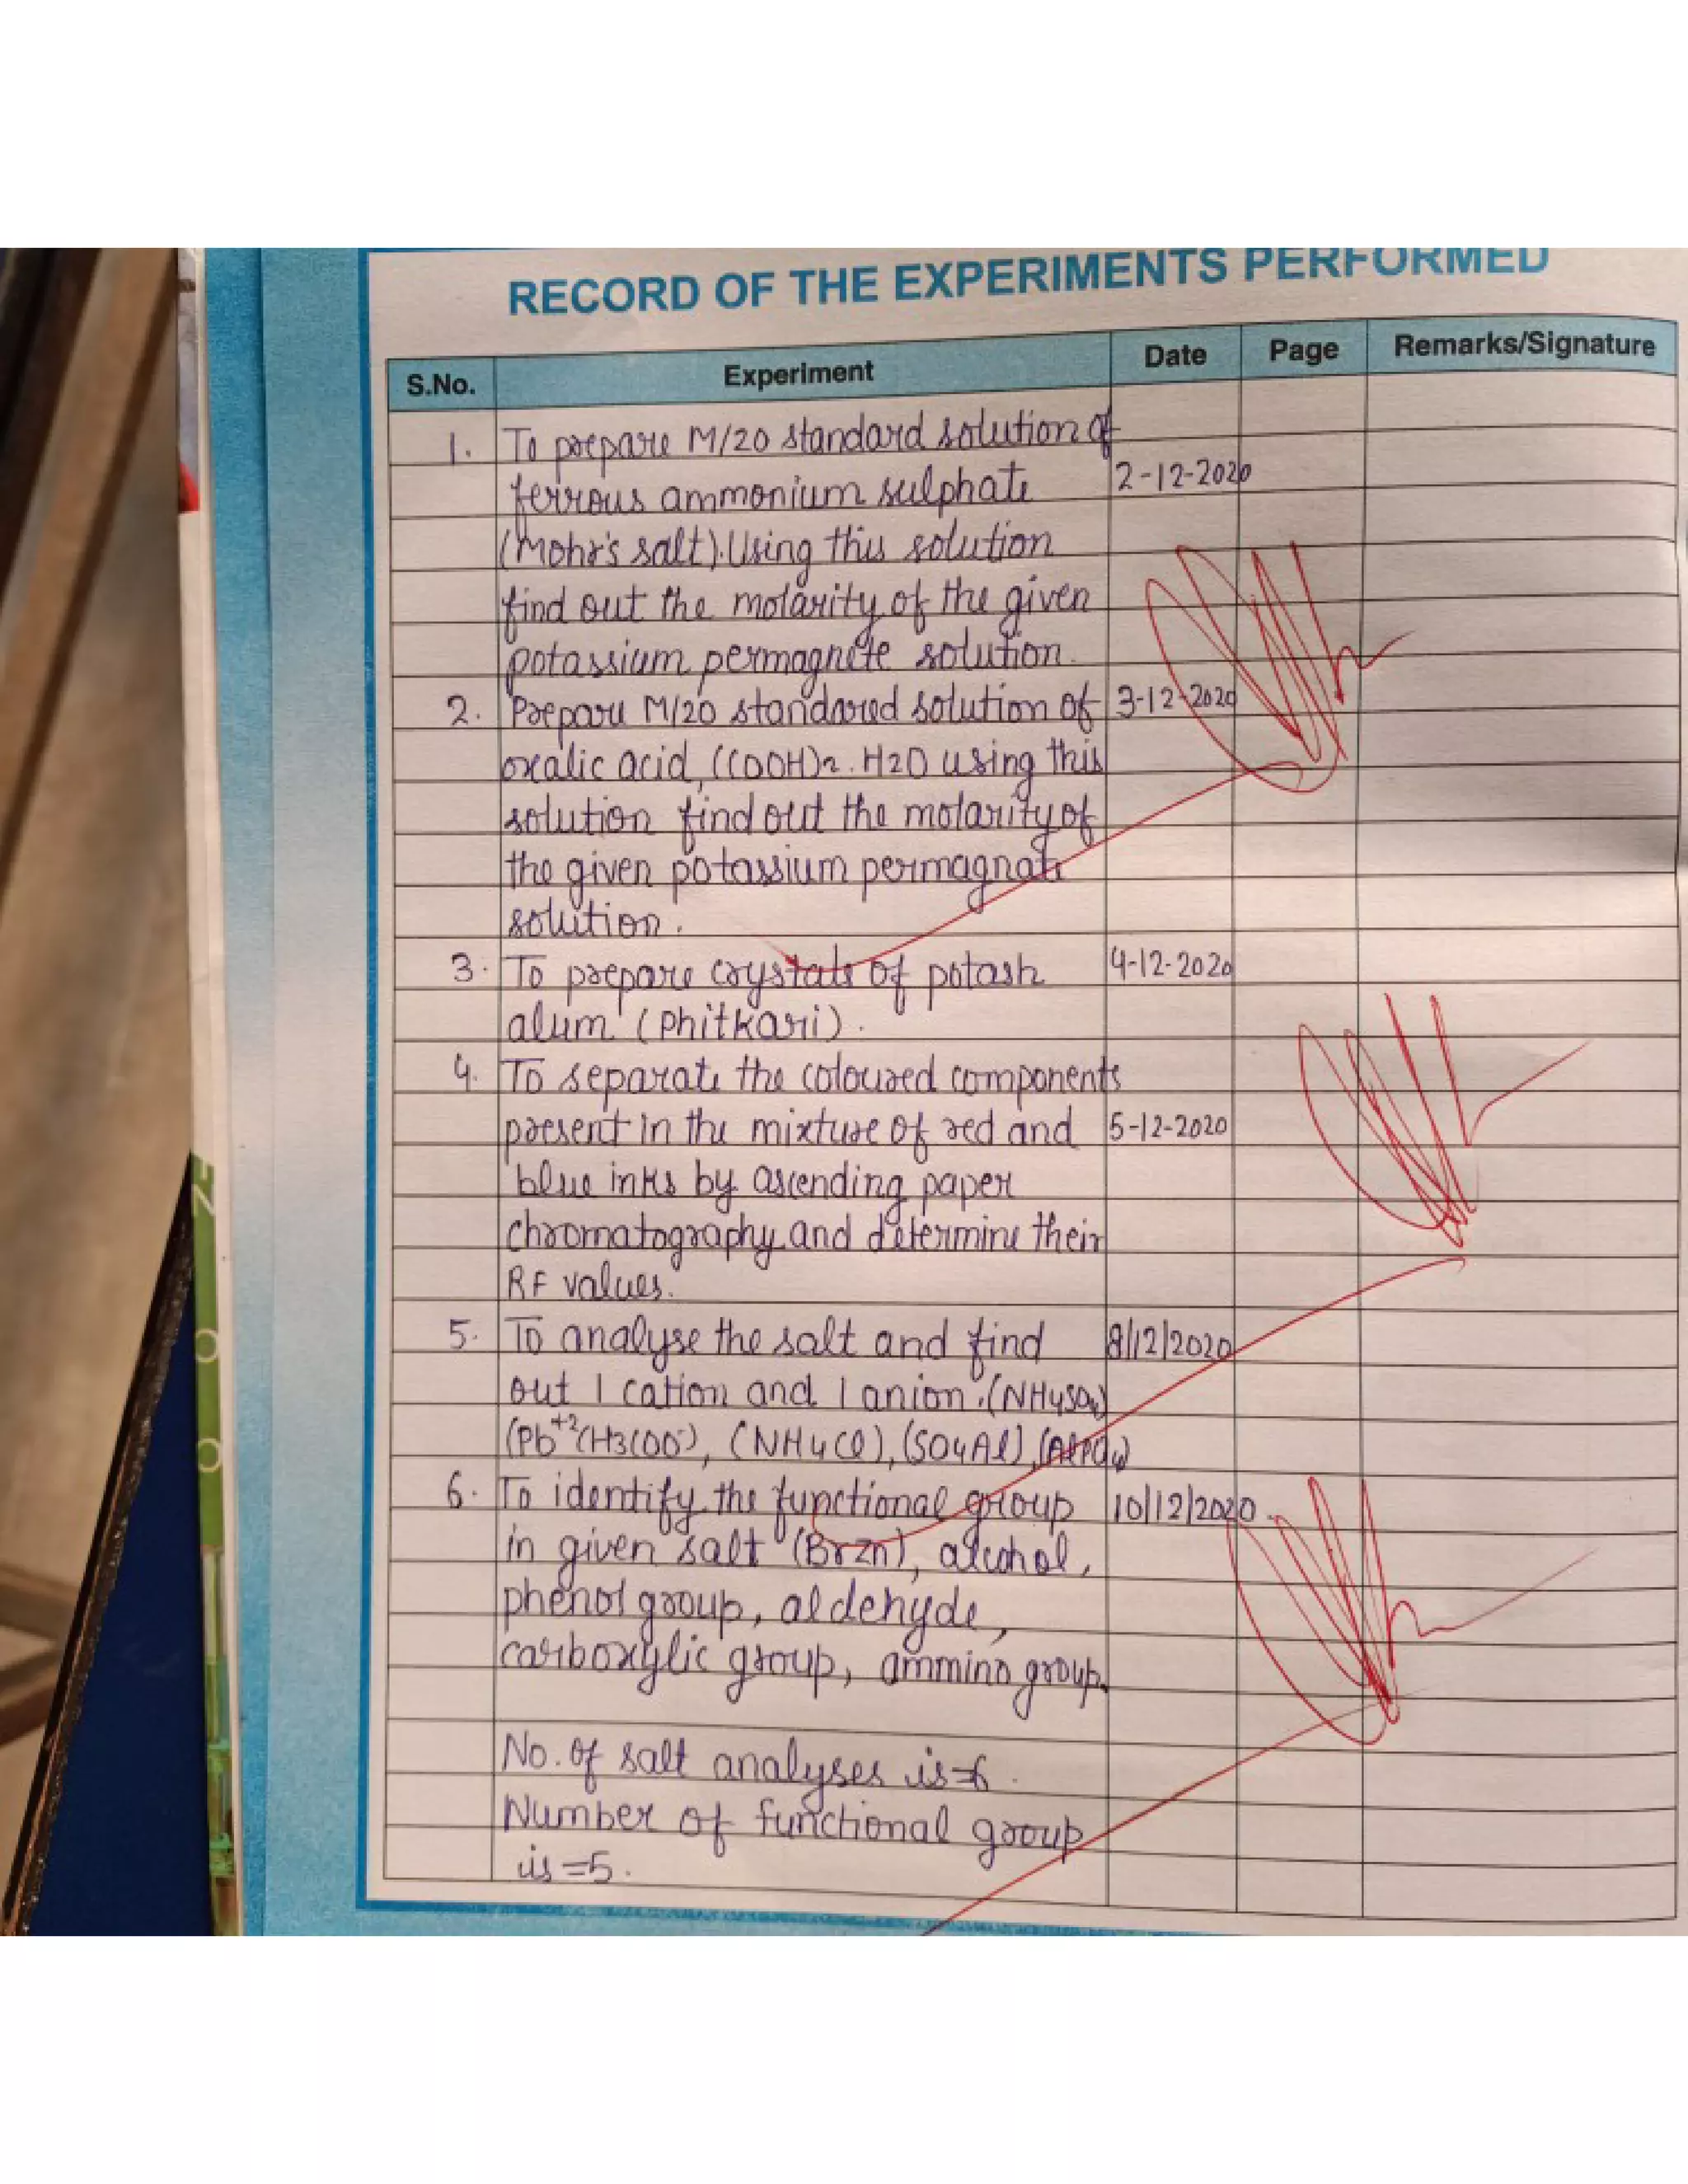 RECORD OF THE EXPERIMENTS PERFORMED
S.No. Experiment Date Page Remarks/Signature
1. To prepare M/20 standard solution of
ferrous ammonium sulphate 2-12-2020
(Mohr's salt). Using this solution
find out the molarity of the given
potassium permagnete solution.
2. Prepare M/20 standared solution of 3-12-2020
oxalic acid, (COOH)2. H2O using this
solution find out the molarity of
the given potassium permagnate
solution.
3. To prepare crystals of potash 4-12-2020
alum (Phitkari).
4. To separate the coloured components
present in the mixture of red and 5-12-2020
blue inks by ascending paper
chromatography and determine their
RF values.
5. To analyse the salt and find 8/12/2020
out 1 cation and 1 anion. (NH4SO4)
(Pb+2CH3COO-), (NH4Cl), (SO4Al),
6. To identify the functional group 10/12/2020
in given salt (Brzn), alcohol,
phenol group, aldehyde,
carboxylic group, ammino group.
No. of salt analyses is=6.
Number of functional group
is =5.